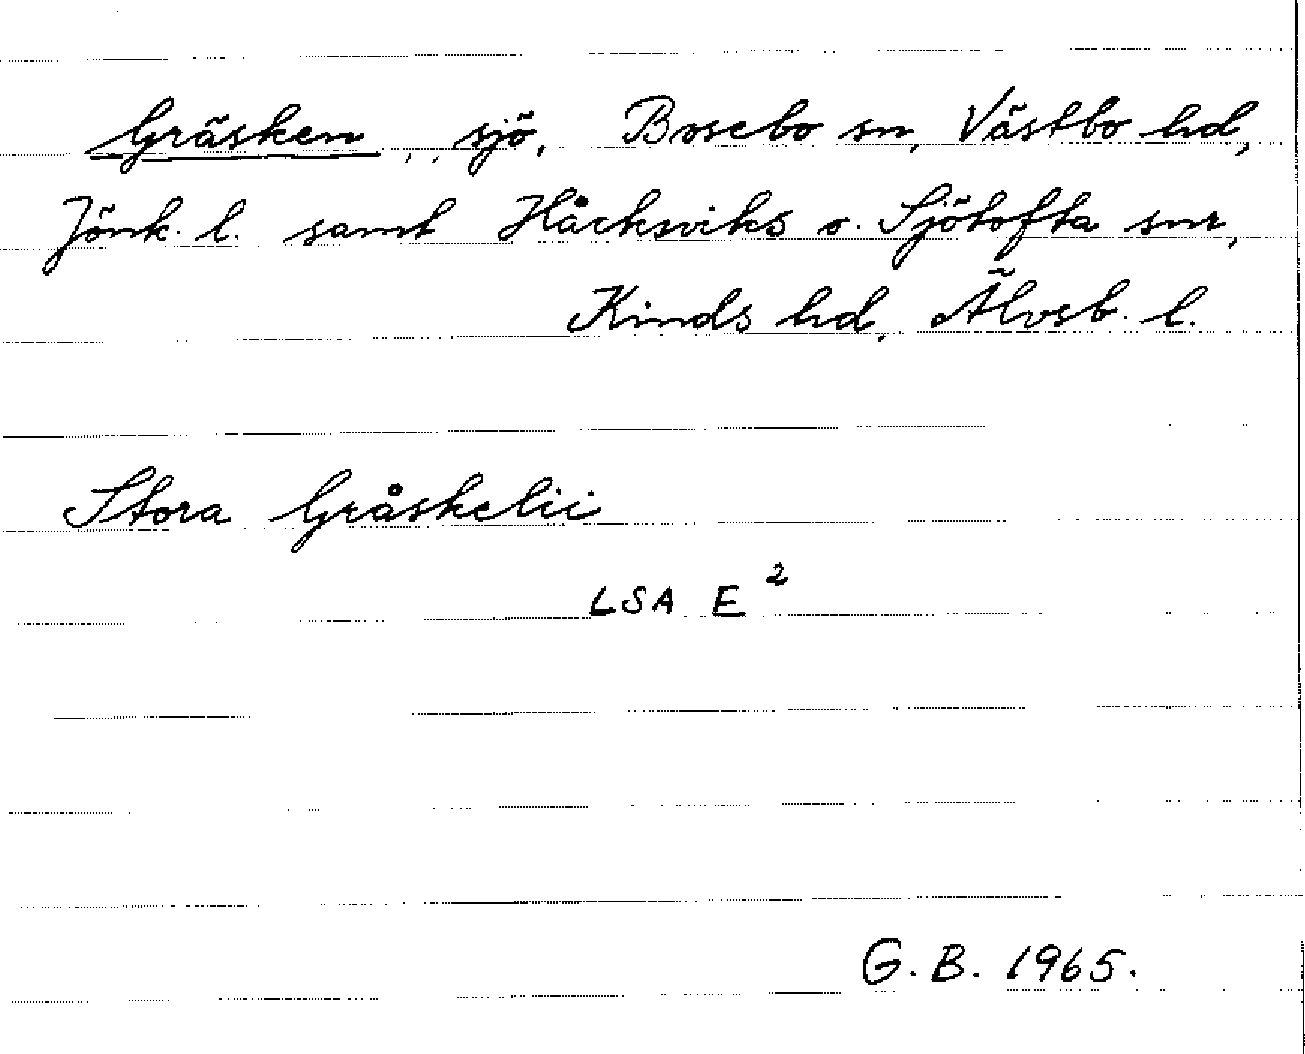 Gräsken, sjö, Bosebo sn, Västbo hd,
Jönk. l. samt Håcksviks o. Sjötofta snr,
Kinds hd, Älvsb. l.
Stora Gråskelii
LSA E 2
G. B. 1965.